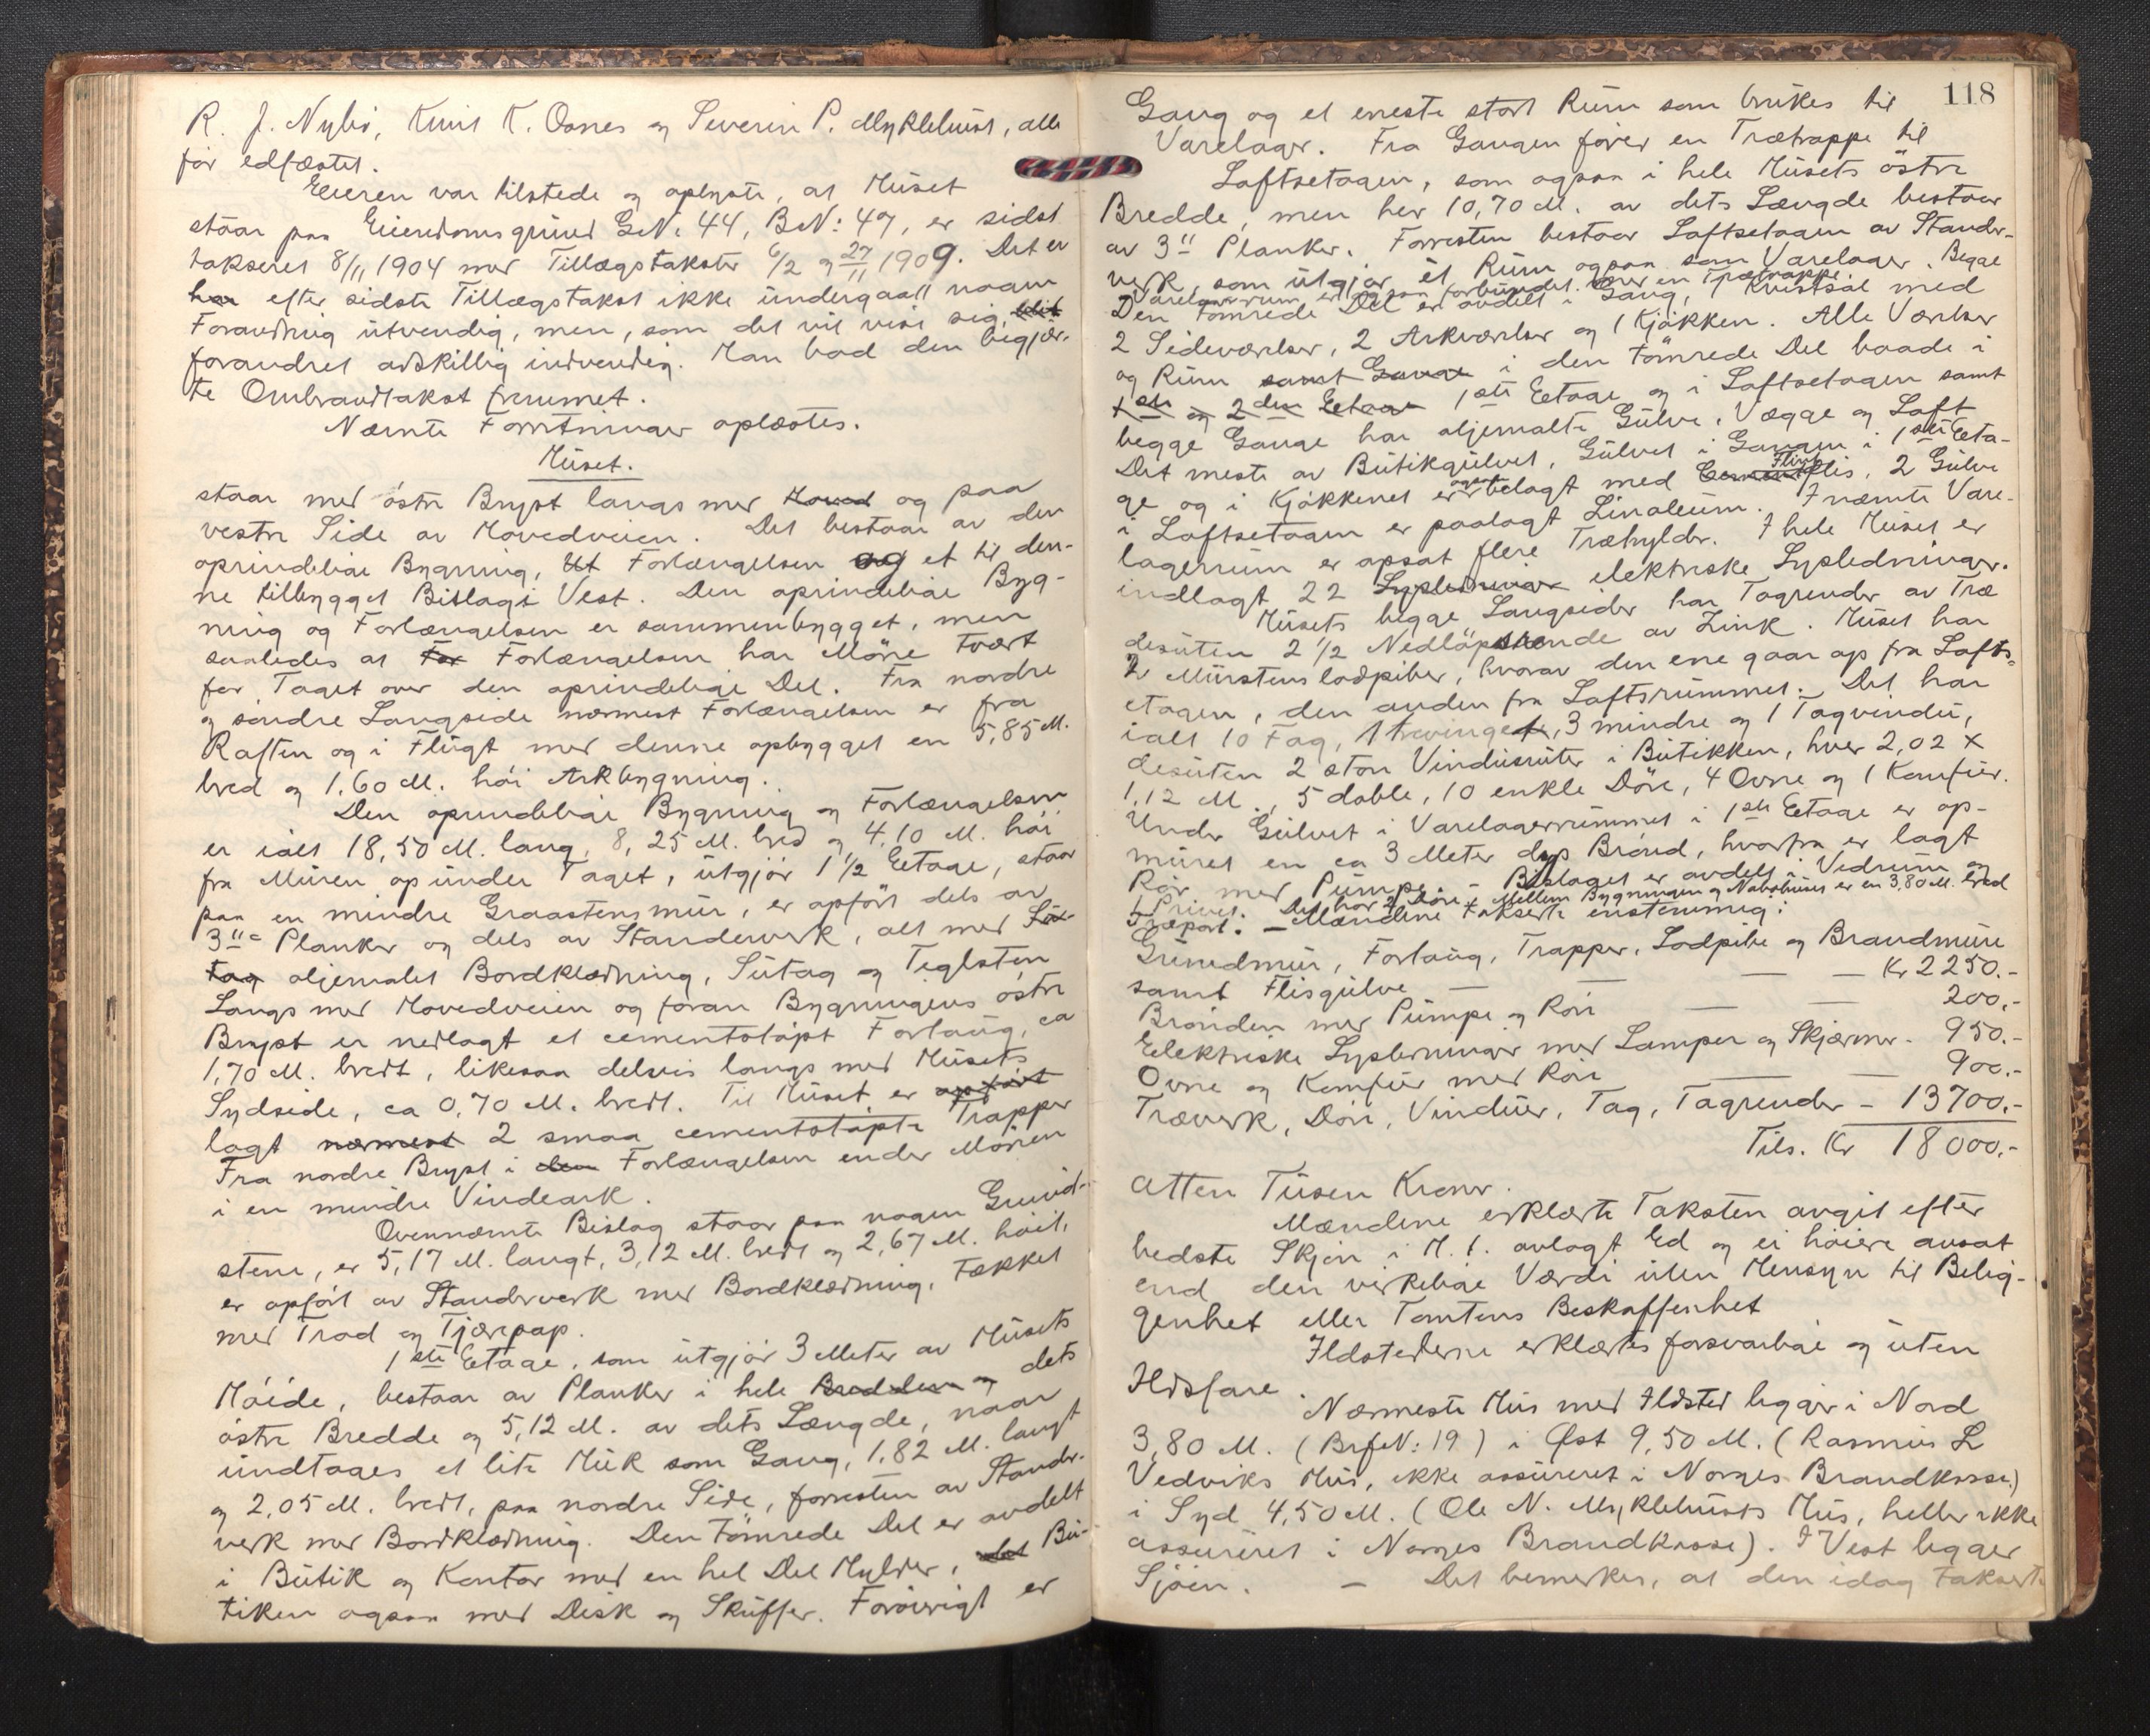 R. J. Nybø, Knut K. Osnes og Severin P. Myklebust, alle
før edfæstet.
Eieren var tilstede og oplyste, at Huset
staar paa Eiendomsgrund G.N: 44, B.N: 47, er sidst
takseret 8/11 1904 med Tillægstakster 6/2 og 27/11 1909. Det er
har efter sidste Tillægstakst ikke undergaatt nogen
Forandring utvendig, men, som det vil vise sig, blit
forandret adskillig indvendig. Man bad den begjær-
te Ombrandtakst fremmet.
Nævnte Forretninger oplæstes.
Huset.
staar med østre Bryst langs med Hoved og paa
vestre Side av Hovedveien. Det bestaar av den
oprindelige Bygning, Ut Forlængelsen og et til den-
ne tilbygget Bislag i Vest. Den oprindelige Byg-
ning og Forlængelsen er sammenbygget, men
saaledes at For Forlængelsen har Møne tvært
for Taget over den oprindelige Del. Fra nordre
og søndre Langside nærmest Forlængelsen er fra
Raften og i Flugt med denne opbygget en 5,85 M.
bred og 1,60 M. høi Arkbygning.
Den oprindelige Bygning og Forlængelsen
er ialt 18,50 M. lang, 8,25 M. bred og 4,10 M. høi
fra Muren op under Taget, utgjør 1 1/2 Etage, staar
paa en mindre Graastensmur, er opført dels av
3" Planker og dels av Standerverk, alt med Su-
tag oljemalet Bordklædning, Sutag og Teglsten
Langs med Hovedveien og foran Bygningens østre
Bryst er nedlagt et cementstøpt Fortaug, ca
1,70 M. bredt, likesaa delvis langs med Husets
Sydside, ca 0,70 M. bredt. Til Huset er opført
lagt nærmest 2 smaa cementstøpte Trapper
Fra nordre Bryst i den Forlængelsen ender Mønen
i en mindre Vindeark.
Ovennævnte Bislag staar paa nogen Grund-
stene, er 5,17 M. langt, 3,12 M. bredt og 2,67 M. høit,
er opført av Standerverk med Bordklædning. Tækket
med Traad og Tjærepap.
1ste Etage, som utgjør 3 Meter av Husets
Høide, bestaar av Planker i hele Bredden og dets
østre Bredde og 5,12 M. av dets Længde, naar
undtages et lite Huk som Gang, 1,82 M. langt
og 2,05 M. bredt, paa nordre Side, forresten av Stander-
verk med Bordklædning. Den tømrede Del er avdelt
i Butik og Kontor med en hel Del Hylder, det Bu-
tiken ogsaa med Disk og Skuffer. Forøvrigt er
118
Gang og et eneste stort Rum som brukes til
Varelager. Fra Gangen fører en Trætrappe til
Loftsetagen, som ogsaa i hele Husets østre
Bredde, men her 10,70 M. av dets Længde bestaar
av 3" Planker. Forresten bestaar Loftsetagen av Stander-
verk, som utgjør et Rum ogsaa som Varelager. Begge
Varelagerrum er ogsaa forbundet med en Trætrappe.
Den tømrede Del er avdelt i Gang, 1 Kvistsal med
2 Sideværelser, 2 Arkværelser og 1 Kjøkken. Alle Værelser
og Rum samt Gange i den tømrede Del baade i
1ste og 2den Etage 1ste Etage og i Loftsetagen samt
begge Gange har oljemalte Gulve, Vægge og Loft
Det meste av Butikgulvet, Gulvet i Gangen i 1ste Eta-
ge og i Kjøkkenet er ogsaa belagt med Cement Flint flis, 2 Gulve
i Loftsetagen er paalagt Linoleum. I nævnte Vare-
lagerrum er opsat flere Træhylder. I hele Huset er
indlagt 22 Lysledninger elektriske Lysledninger.
Husets begge Langsider har Tagrender av Træ
desuten 2 1/2 Nedløpsrende av Zink. Huset har
2 Murstens lodpiber, hvorav den ene gaar op fra Lofts-
etagen, den anden fra Loftsrummet. Det har
ialt 10 Fag, 1 trevinget, 3 mindre og 1 Tagvindu,
desuten 2 store Vindusruter i Butikken, hver 2,02 x
1,12 M., 5 doble, 10 enkle Døre, 4 Ovne og 1 Komfur.
Under Gulvet i Varelagerrummet i 1ste Etage er op-
muret en ca 3 Meter dyp Brønd, hvorfra er lagt
Rør med Pumpe. - Bislaget er avdelt i Vedrum og
1 Privet. Det har 2 Døre. Mellem Bygningen og Nabohuset er en 3,80 M. bred
Træport. - Mændene takserte enstemmig:
Grundmur, Fortaug, Trapper, Lodpibe og Brandmure
samt Flisgulve — — — Kr 2250.-
Brønden med Pumpe og Rør — — 200.-
Elektriske Lysledninger med Lamper og Skjærmer - 950.-
Ovne og Komfur med Rør — — 900.-
Træverk, Døre, Vinduer, Tag, Tagrender - 13700.-
Tils. Kr 18000.-
Atten Tusen Kroner.
Mændene erklærte Taksten avgit efter
bedste Skjøn i H. t. avlagt Ed og ei høiere ansat
end den virkelige Værdi uten Hensyn til Belig-
genhet eller Tomtens Beskaffenhet
Ildstederne erklærtes forsvarlige og uten
Ildsfare.
Nærmeste Hus med Ildsted ligger i Nord
3,80 M. (Brf.N: 19) i Øst 9,50 M. (Rasmus L
Vedviks Hus, ikke assureret i Norges Brandkasse)
i Syd 4,50 M. (Ole N. Myklebusts Hus, heller ikke
assureret i Norges Brandkasse). I Vest ligger
Sjøen. - Det bemerkes, at den idag takserte